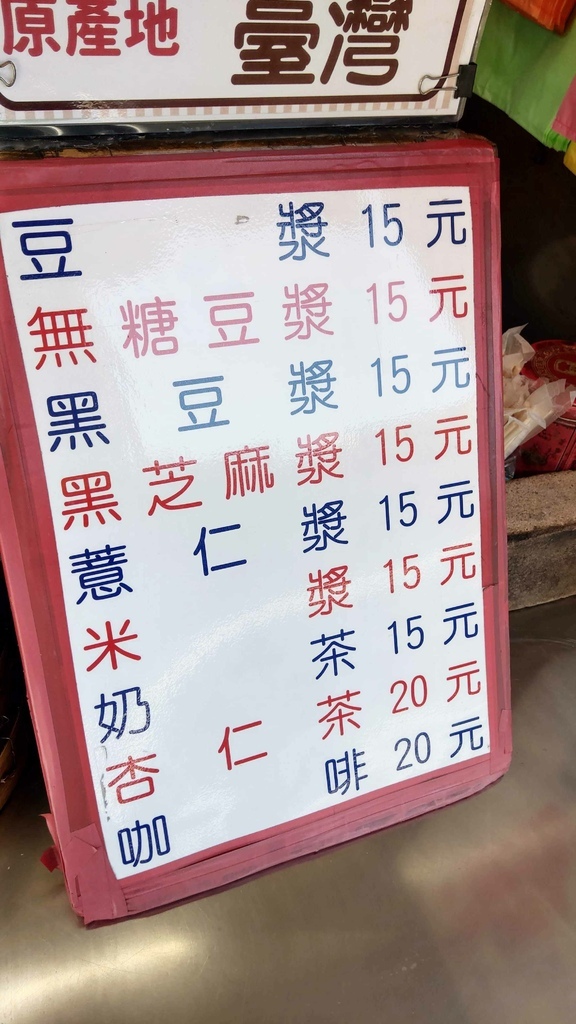 原產地 臺灣
豆漿 15 元
無糖豆漿 15 元
黑豆漿 15 元
黑芝麻漿 15 元
薏仁漿 15 元
米漿 15 元
奶茶 15 元
杏仁茶 20 元
咖啡 20 元